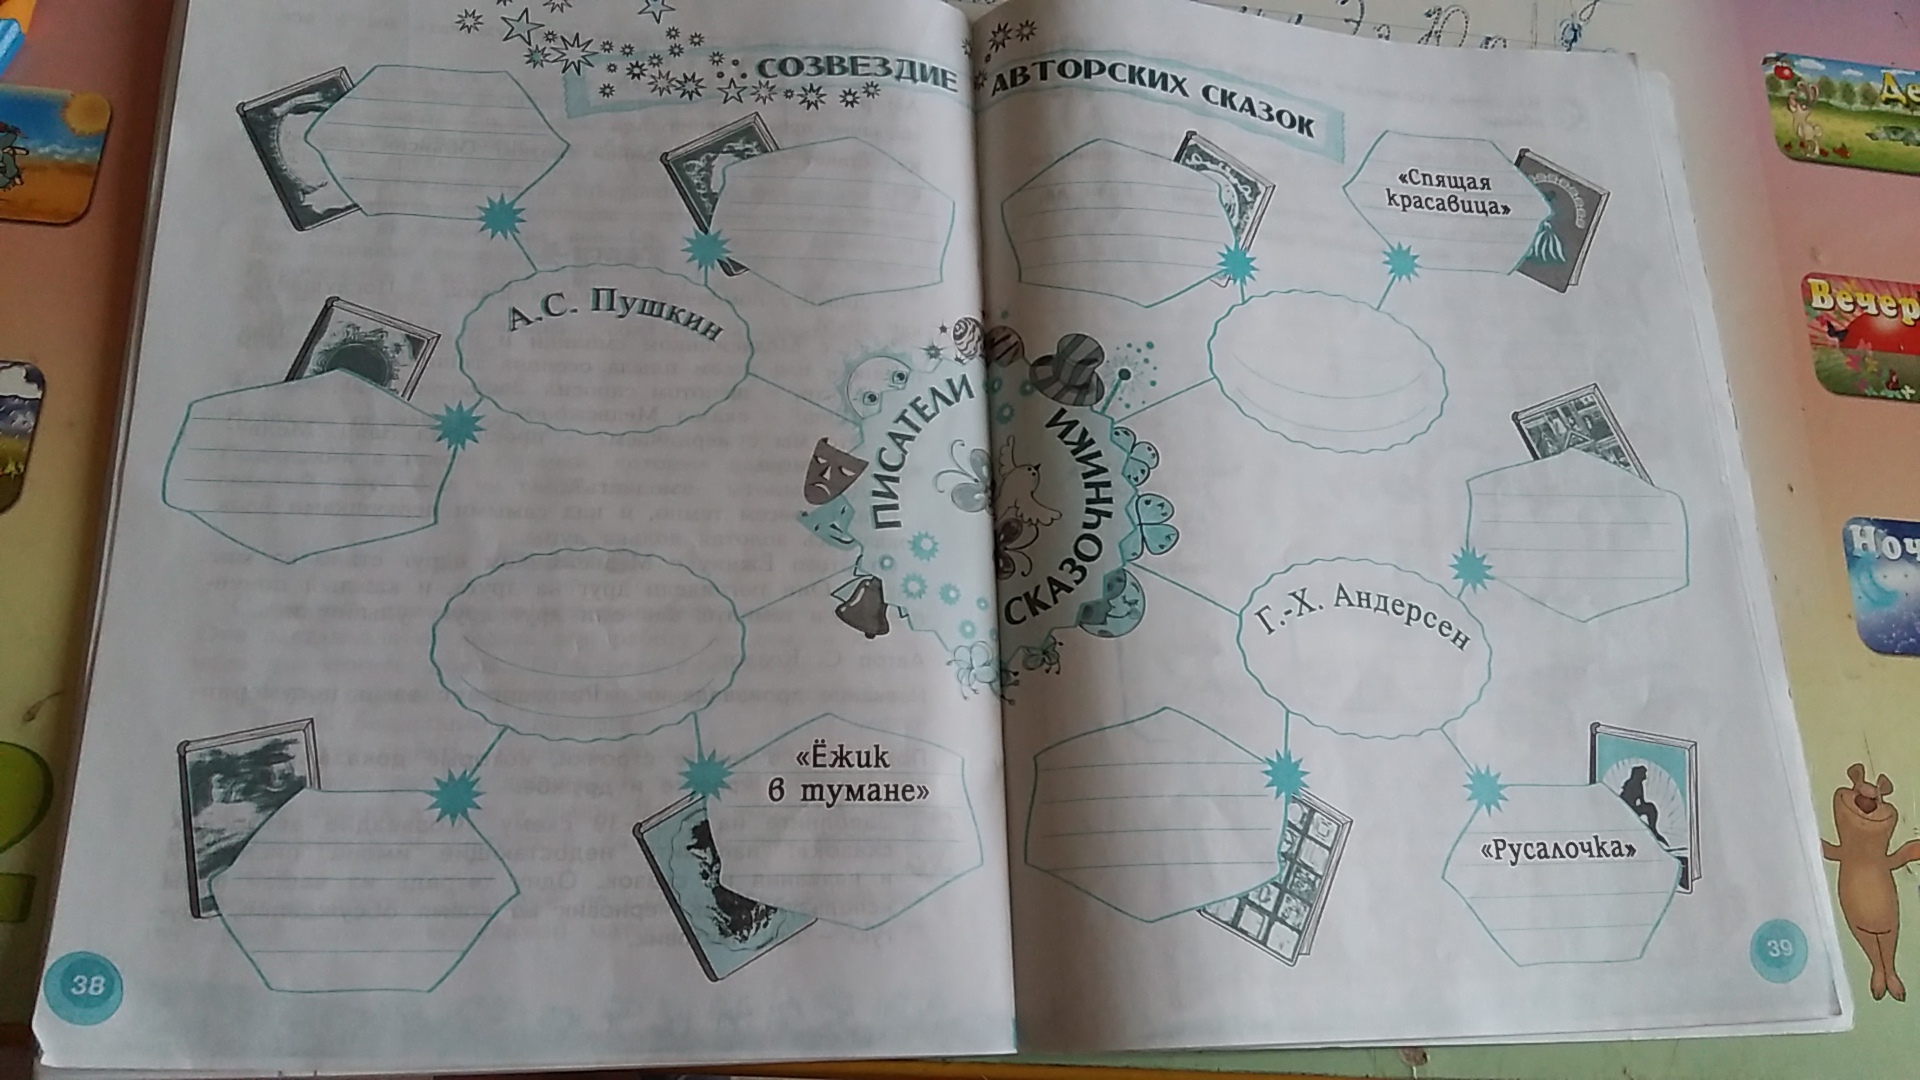 СОЗВЕЗДИЕ АВТОРСКИХ СКАЗОК
А.С. Пушкин
«Ёжик
в тумане»
38
ПИСАТЕЛИ
СКАЗОЧНИКИ
«Спящая
красавица»
Г.-Х. Андерсен
«Русалочка»
39
Де
Вечер
Ноч